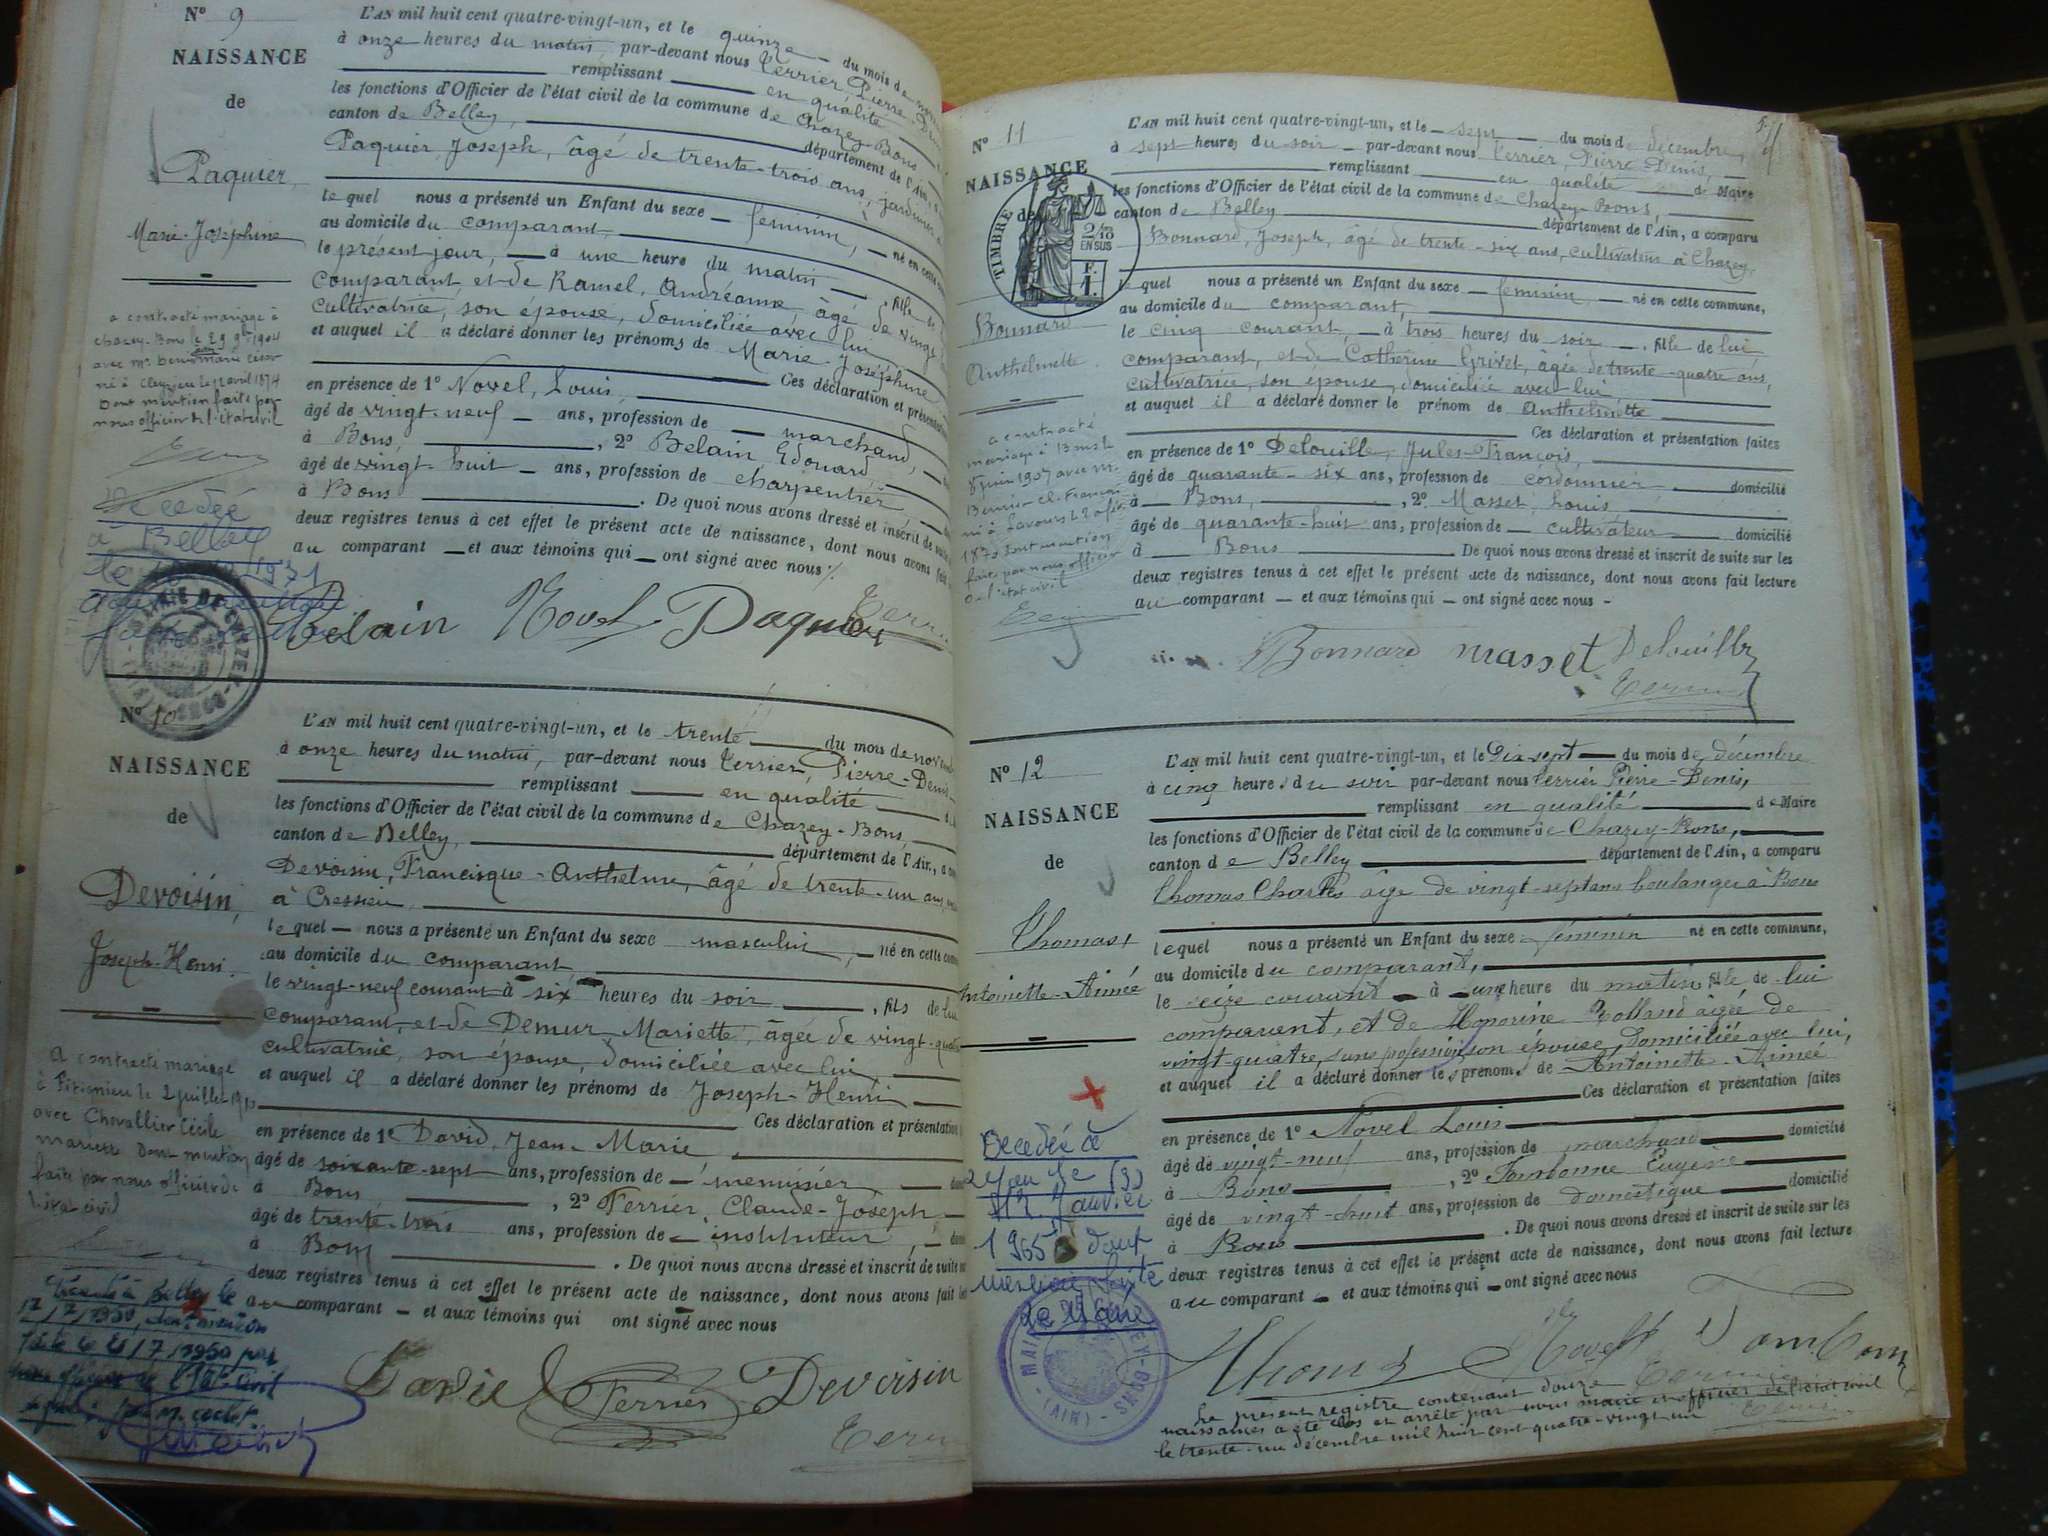 N° 9
NAISSANCE
de
Paquier,
Marie-Joséphine
L'AN mil huit cent quatre-vingt-un, et le quinze du mois de
à onze heures du matin, par-devant nous Terrier, Pierre
remplissant en qualité
les fonctions d'Officier de l'état civil de la commune de Chazey-Bons
canton de Belley, département de l'Ain,
Paquier, Joseph, âgé de trente-trois ans, jardinier
lequel nous a présenté un Enfant du sexe féminin, né en cette
au domicile du comparant,
le présent jour, à une heure du matin, fille de
comparant, et de Ramel, Andréanne, âgé de vingt
cultivatrice, son épouse, domiciliée avec lui
et auquel il a déclaré donner les prénoms de Marie-Joséphine
Ces déclaration et présentation
en présence de 1° Novel, Louis,
âgé de vingt-neuf ans, profession de marchand,
à Bons, 2° Belain, Edouard
âgé de vingt-huit ans, profession de charpentier
à Bons. De quoi nous avons dressé et inscrit de suite
deux registres tenus à cet effet le présent acte de naissance, dont nous avons fait
au comparant et aux témoins qui ont signé avec nous
a contracté mariage à
Chazey-Bons le 29 9bre 1904
avril 1874
Dont mention faite par
nous officier de l'état civil
Décédée
à Belley
le 1971
Belain Novel Paquier
N° 10
NAISSANCE
de
Devoisin,
Joseph-Henri.
L'AN mil huit cent quatre-vingt-un, et le trente du mois de novembre
à onze heures du matin, par-devant nous Terrier, Pierre-Denis
remplissant en qualité
les fonctions d'Officier de l'état civil de la commune de Chazey-Bons,
canton de Belley, département de l'Ain, a
Devoisin, Francisque-Anthelme, âgé de trente-un ans,
à Cressieu
lequel nous a présenté un Enfant du sexe masculin, né en cette
au domicile du comparant,
le vingt-neuf courant à six heures du soir, fils de lui
comparant, et de Demur, Mariette, âgée de vingt-quatre
cultivatrice, son épouse, domiciliée avec lui,
et auquel il a déclaré donner les prénoms de Joseph-Henri
Ces déclaration et présentation
en présence de 1° David, Jean-Marie
âgé de soixante-sept ans, profession de menuisier,
à Bons, 2° Ferrier, Claude-Joseph
âgé de trente-trois ans, profession de instituteur,
à Bons. De quoi nous avons dressé et inscrit de suite
deux registres tenus à cet effet le présent acte de naissance, dont nous avons fait
au comparant et aux témoins qui ont signé avec nous
A contracté mariage
à le 2 juillet 1910
avec Chevallier Cécile
Mariette Dont mention
faite par nous officier de
l'état civil
à Belley le
12/7/1950, dont mention
faite le 21/7/1950 par
nous officier de l'état civil
David Ferrier Devoisin
N° 11
NAISSANCE
de
TIMBRE
2/10
EN SUS
F.
1.
Bonnard
Anthelmette
L'AN mil huit cent quatre-vingt-un, et le sept du mois de décembre,
à sept heures du soir par-devant nous Terrier, Pierre-Denis,
remplissant en qualité de Maire
les fonctions d'Officier de l'état civil de la commune de Chazey-Bons,
canton de Belley département de l'Ain, a comparu
Bonnard, Joseph, âgé de trente-six ans, cultivateur à Chazey,
lequel nous a présenté un Enfant du sexe féminin, né en cette commune,
au domicile du comparant,
le cinq courant, à trois heures du soir, fille de lui
comparant, et de Catherine Grivet, âgée de trente-quatre ans,
cultivatrice, son épouse, domiciliée avec lui
et auquel il a déclaré donner le prénom de Anthelmette
Ces déclaration et présentation faites
en présence de 1° Delouille, Jules-François,
âgé de quarante-six ans, profession de cordonnier domicilié
à Bons, 2° Masset, Louis
âgé de quarante-huit ans, profession de cultivateur domicilié
à Bons De quoi nous avons dressé et inscrit de suite sur les
deux registres tenus à cet effet le présent acte de naissance, dont nous avons fait lecture
au comparant et aux témoins qui ont signé avec nous
a contracté
mariage à Bons le
8 juin 1907 avec M.
dont mention
faite par nous officier
de l'état civil
Bonnard Masset Delouille
N° 12
NAISSANCE
de
Thomas,
Antoinette-Aimée
L'AN mil huit cent quatre-vingt-un, et le Dix-sept du mois de décembre
à cinq heures du soir par-devant nous Terrier Pierre-Denis,
remplissant en qualité de Maire
les fonctions d'Officier de l'état civil de la commune de Chazey-Bons,
canton de Belley département de l'Ain, a comparu
Thomas Charles âgé de vingt-sept ans boulanger à Bons
lequel nous a présenté un Enfant du sexe féminin né en cette commune,
au domicile du comparant,
le seize courant à une heure du matin fille de lui
comparant, et de Honorine Rolland âgée de
vingt-quatre, sans profession, son épouse, domiciliée avec lui,
et auquel il a déclaré donner les prénoms de Antoinette-Aimée
Ces déclaration et présentation faites
en présence de 1° Novel Louis
âgé de vingt-neuf ans, profession de marchand domicilié
à Bons, 2° Tambonne Eugène
âgé de vingt-huit ans, profession de domestique domicilié
à Bons. De quoi nous avons dressé et inscrit de suite sur les
deux registres tenus à cet effet le présent acte de naissance, dont nous avons fait lecture
au comparant et aux témoins qui ont signé avec nous
Décédée à
Janvier
1965 dont
mention faite
Le Maire
Thomas Novel
Le présent registre contenant douze
naissances a été clos et arrêté par nous maire et officier de l'état civil
le trente-un décembre mil huit cent quatre-vingt-un